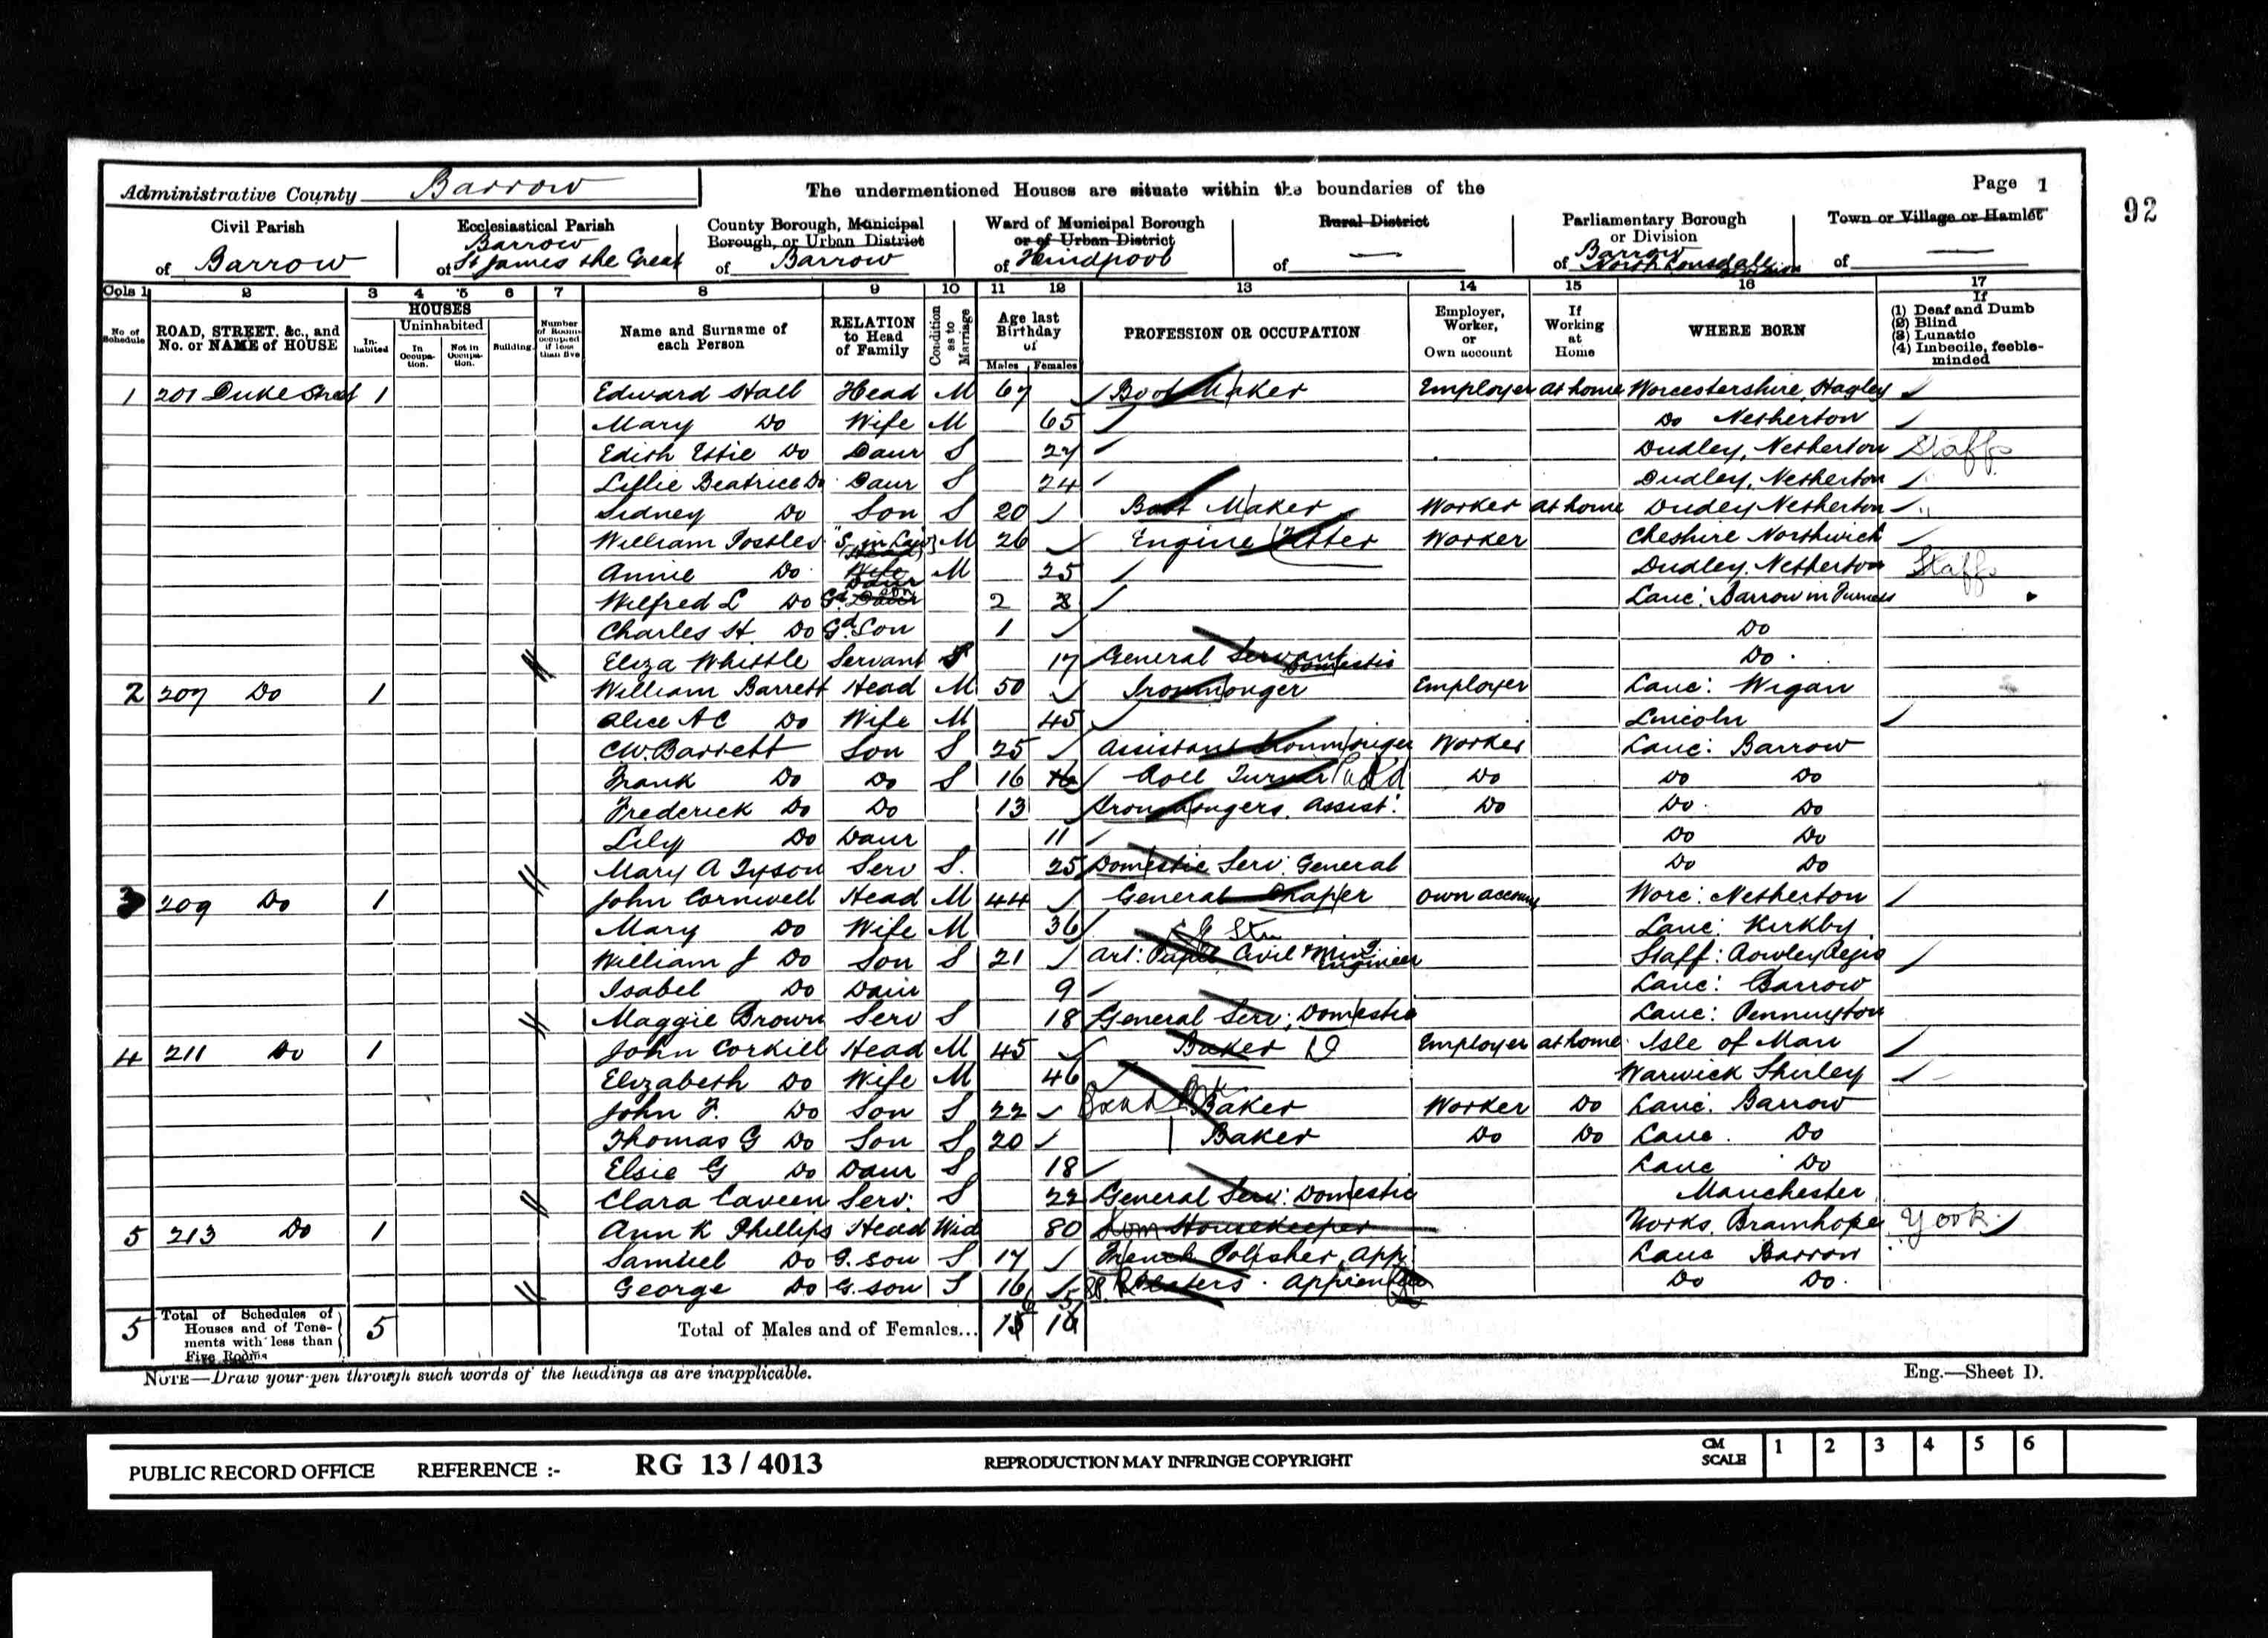 Administrative County Barrow The undermentioned Houses are situate within the boundaries of the Page 1
92
Civil Parish Ecclesiastical Parish County Borough, Municipal Borough, or Urban District Ward of Municipal Borough or of Urban District Rural District Parliamentary Borough or Division Town or Village or Hamlet
of Barrow of Barrow St James the Great of Barrow of Hindpool of — of Barrow North Lonsdale of —
Cols 1 2 3 4 5 6 7 8 9 10 11 12 13 14 15 16 17
No of Schedule ROAD, STREET, &c., and No. or NAME of HOUSE HOUSES Inhabited Uninhabited In Occupation. Not in Occupation. Building Number of Rooms occupied if less than five Name and Surname of each Person RELATION to Head of Family Condition as to Marriage Age last Birthday of Males Females PROFESSION OR OCCUPATION Employer, Worker, or Own account If Working at Home WHERE BORN If (1) Deaf and Dumb (2) Blind (3) Lunatic (4) Imbecile, feeble-minded
1 201 Duke Street 1 Edward Hall Head M 67 Boot Maker Employer at home Worcestershire, Hagley
Mary Do Wife M 65 Do Netherton
Edith Essie Do Daur S 27 Dudley, Netherton Staffs
Lillie Beatrice Do Daur S 24 Dudley, Netherton
Sidney Do Son S 20 Boot Maker Worker at home Dudley Netherton
William Postles S in Law M 26 Engine Fitter Worker Cheshire Northwich
Annie Do Wife Daur M 25 Dudley, Netherton Staffs
Wilfred L Do Gd Son 2 Lanc: Barrow in Furness
Charles H. Do Gd Son 1 Do
Eliza Whittle Servant S 17 General Servant Domestic Do
2 207 Do 1 William Barrett Head M 50 Ironmonger Employer Lanc: Wigan
Alice A C Do Wife M 45 Lincoln
C W. Barrett Son S 25 Assistant Ironmonger Worker Lanc: Barrow
Frank Do Do S 16 Roll Turner Do Do Do
Frederick Do Do 13 Ironmongers, Assist: Do Do Do
Lily Do Daur 11 Do Do
Mary A Tyson Serv S. 25 Domestic Serv: General Do Do
3 209 Do 1 John Cornwell Head M 44 General Draper own account Worc: Netherton
Mary Do Wife M 36 Lanc: Kirkby
William J Do Son S 21 Art: Pupil Civil Ming Engineer Staff: Rowley Regis
Isabel Do Daur 9 Lanc: Barrow
Maggie Brown Serv S 18 General Serv: Domestic Lanc: Pennington
4 211 Do 1 John Corkill Head M 45 Baker Employer at home Isle of Man
Elizabeth Do Wife M 46 Warwick Shirley
John F. Do Son S 22 Baker Worker Do Lanc. Barrow
Thomas G Do Son S 20 Baker Do Do Lanc. Do
Elsie G Do Daur S 18 Lanc Do
Clara Caveen Serv: S 22 General Serv: Domestic Manchester
5 213 Do 1 Ann K Phillips Head Wid 80 Dom Housekeeper Yorks, Bramhope York
Samuel Do G. son S 17 French Polisher, App: Lanc Barrow
George Do G. son S 16 Apprentice Do Do
5 Total of Schedules of Houses and of Tenements with less than Five Rooms 5 Total of Males and of Females...
NOTE—Draw your pen through such words of the headings as are inapplicable. Eng.—Sheet D.
PUBLIC RECORD OFFICE REFERENCE :- RG 13 / 4013 REPRODUCTION MAY INFRINGE COPYRIGHT CM SCALE 1 2 3 4 5 6